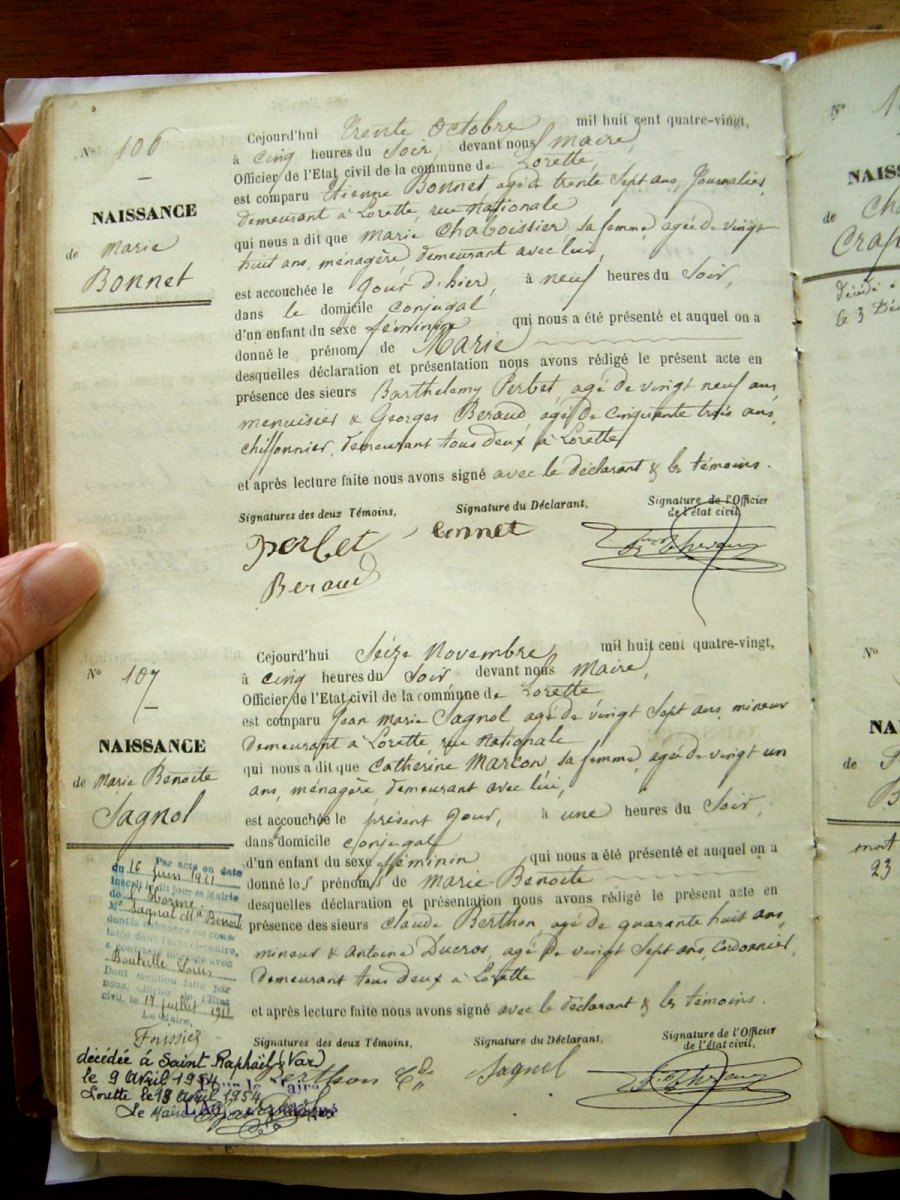 Nº 106
NAISSANCE
de Marie
Bonnet
Cejourd'hui trente Octobre mil huit cent quatre-vingt,
à cinq heures du Soir, devant nous maire,
Officier de l'Etat civil de la commune de Lorette,
est comparu Etienne Bonnet agé de trente Sept ans, Journalier
demeurant à Lorette, rue Nationale
qui nous a dit que Marie Chaboissier sa femme, agée de vingt
huit ans, ménagère demeurant avec lui,
est accouchée le jour d'hier, à neuf heures du Soir,
dans le domicile conjugal
d'un enfant du sexe féminin qui nous a été présenté et auquel on a
donné le prénom de Marie
desquelles déclaration et présentation nous avons rédigé le présent acte en
présence des sieurs Barthelemy Perbet, agé de vingt neuf ans
menuisier & Georges Beraud agé de cinquante trois ans,
chiffonnier, demeurant tous deux à Lorette
et après lecture faite nous avons signé avec le déclarant & les témoins.
Signatures des deux Témoins, Signature du Déclarant, Signature de l'Officier
de l'état civil,
Perbet Bonnet
Beraud
Nº 107
NAISSANCE
de Marie Benoite
Sagnol
Cejourd'hui Seize Novembre mil huit cent quatre-vingt,
à cinq heures du Soir devant nous maire,
Officier de l'Etat civil de la commune de Lorette
est comparu Jean Marie Sagnol agé de vingt Sept ans, mineur
demeurant à Lorette rue Nationale
qui nous a dit que Catherine Marcon sa femme, agée de vingt un
ans, ménagère, demeurant avec lui,
est accouchée le présent jour, à une heures du Soir,
dans domicile conjugal
d'un enfant du sexe féminin qui nous a été présenté et auquel on a
donné les prénoms de Marie Benoite
desquelles déclaration et présentation nous avons rédigé le présent acte en
présence des sieurs Claude Berthon, agé de quarante huit ans,
mineur & Antoine Ducros, agé de vingt Sept ans, Cordonnier,
demeurant tous deux à Lorette
et après lecture faite nous avons signé avec le déclarant & les témoins.
Signatures des deux Témoins, Signature du Déclarant, Signature de l'Officier
de l'état civil,
Sagnol
Par acte en date
du 16 Juin 1911
inscrit le dit jour en Mairie
de l'Horme
Mlle Sagnol Mie Benoite
dont la naissance est cons-
tatée dans l'acte ci-contre,
a contracté mariage avec
Bouteille Louis
Dont mention faite par
nous, officier de l'Etat
civil, le 17 Juillet 1911
Le Maire,
décédée à Saint Raphaël (Var)
le 9 Avril 1954
Lorette le 13 Avril 1954
Le Maire
Nº 1
NAISS
de Ch
Crap
décédé
le 3 Dé
Nº
NA
de
B
mort
23